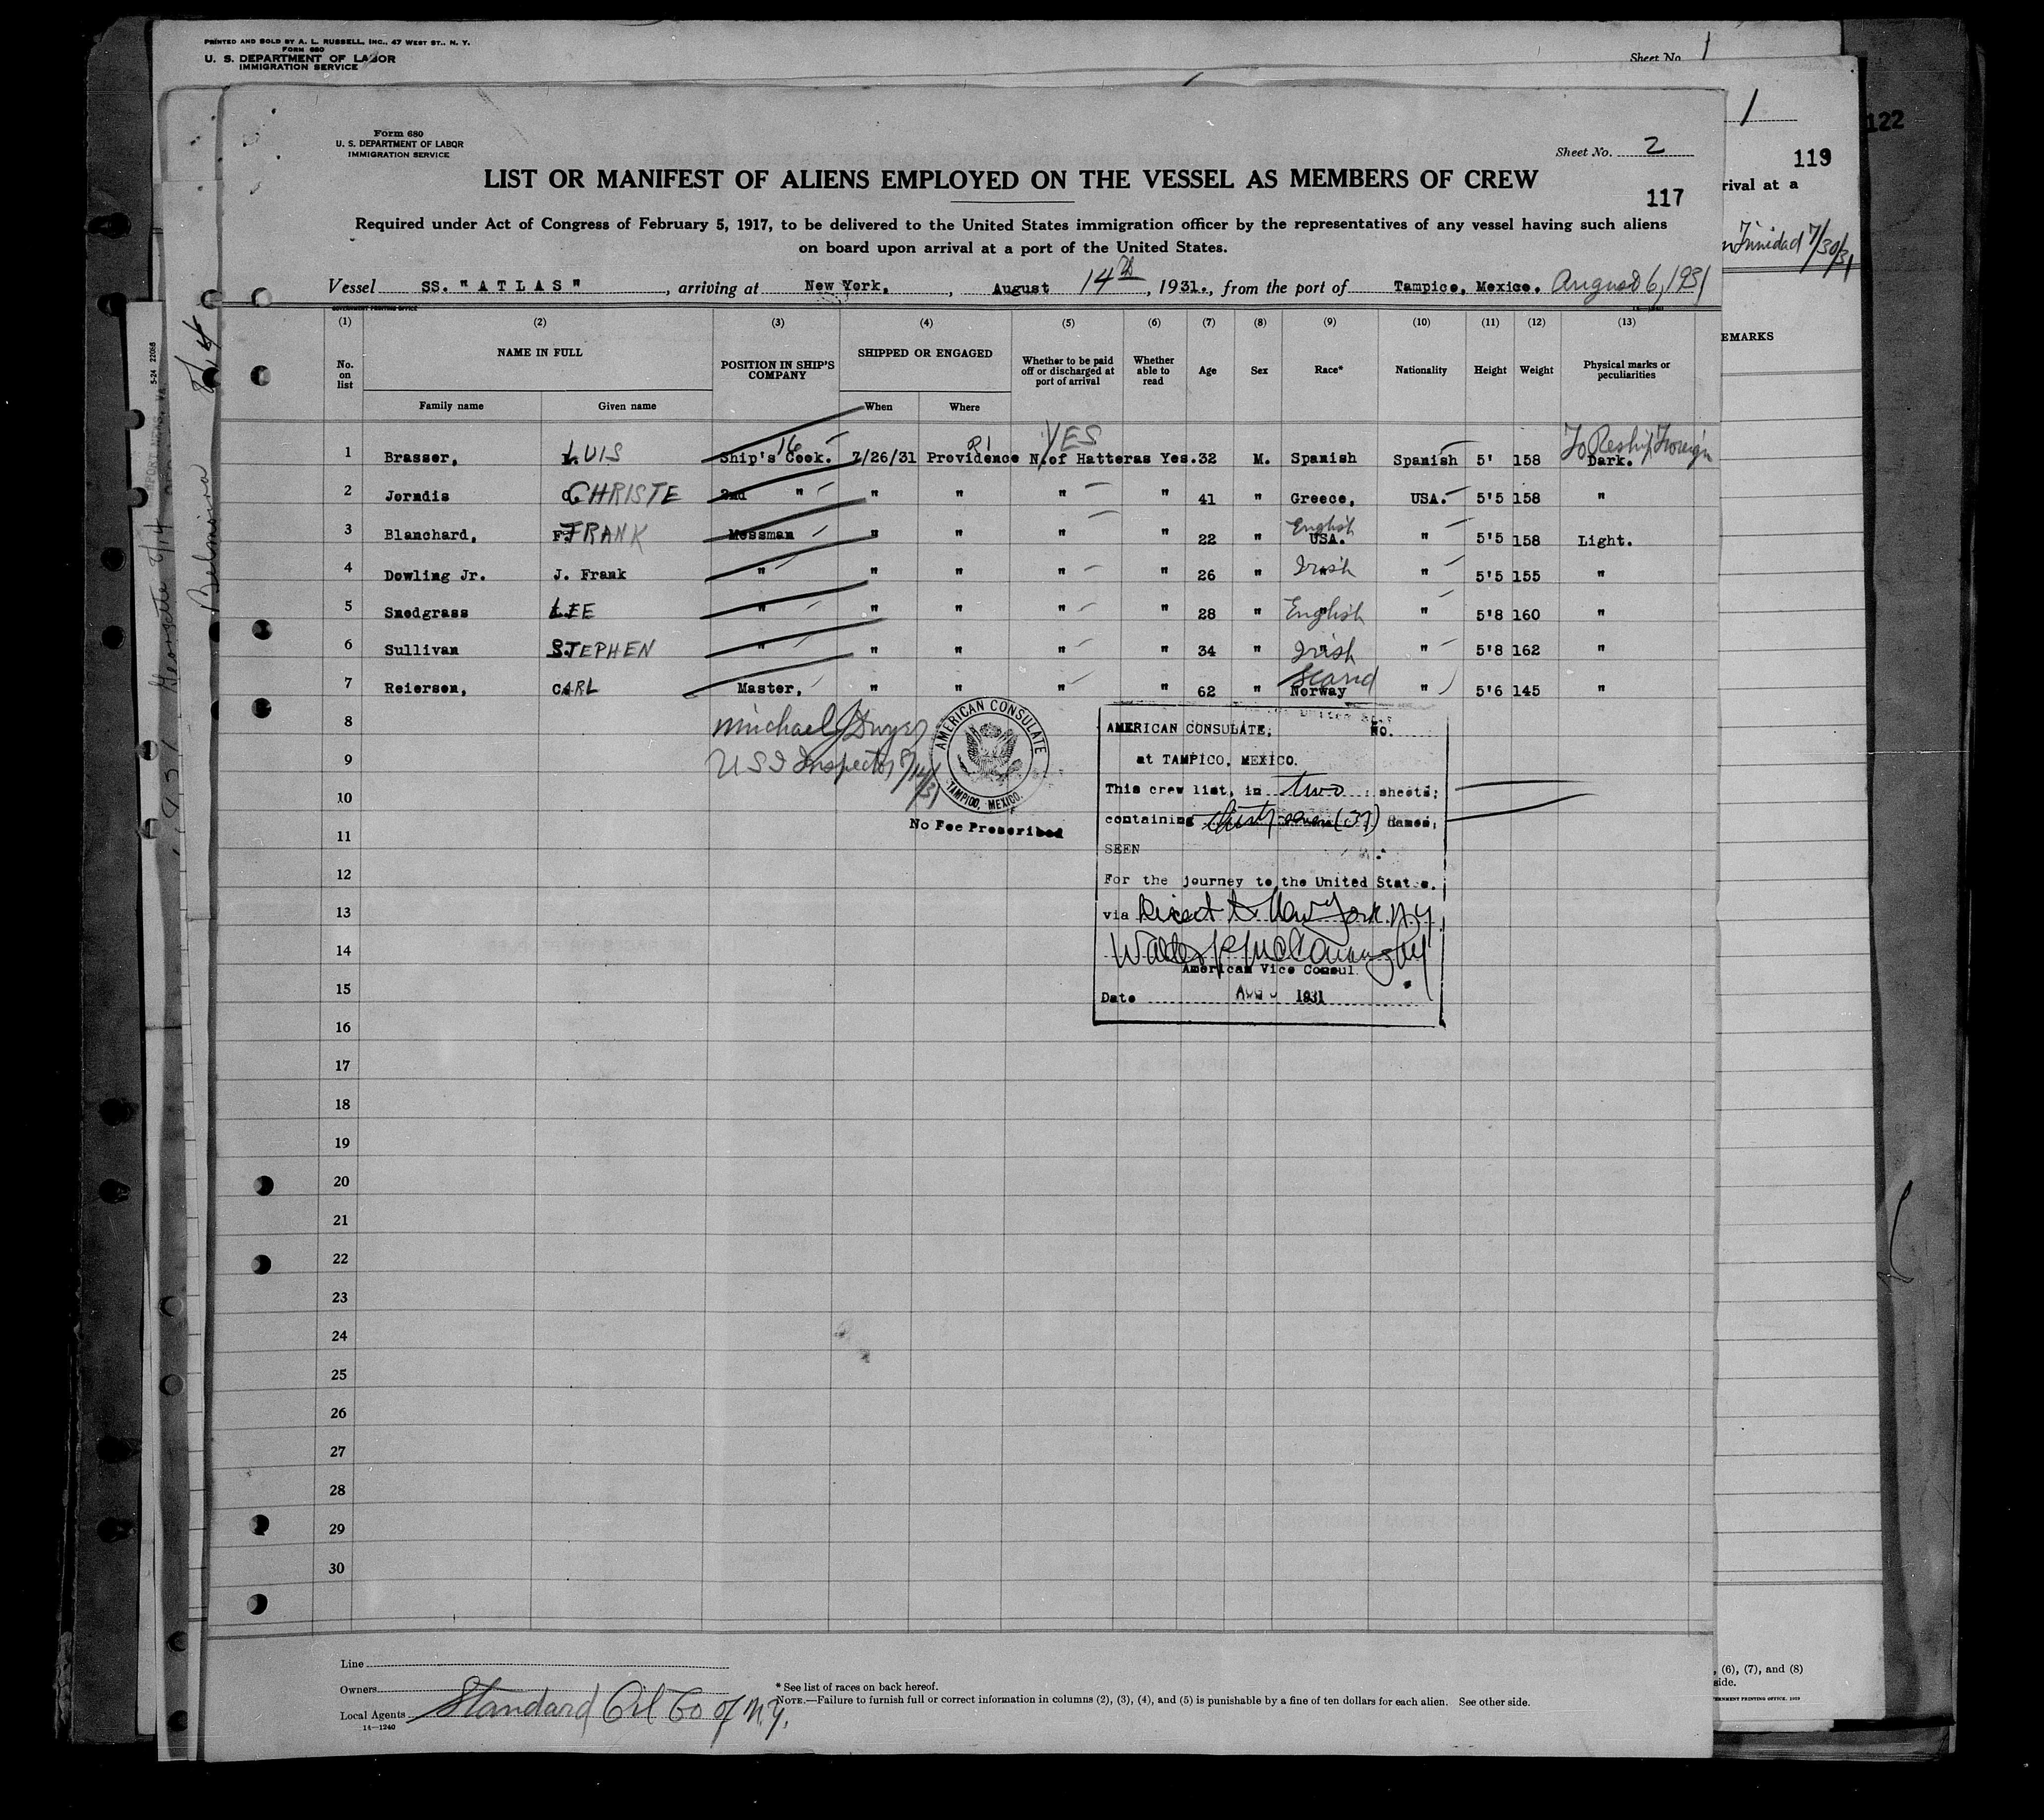 PRINTED AND SOLD BY A. L. RUSSELL, INC., 47 WEST ST., N. Y.
FORM 680
U. S. DEPARTMENT OF LABOR
IMMIGRATION SERVICE
Sheet No. 1
1
122
119
rival at a
Trinidad 7/30/31
EMARKS
Form 680
U. S. DEPARTMENT OF LABOR
IMMIGRATION SERVICE
Sheet No. 2
LIST OR MANIFEST OF ALIENS EMPLOYED ON THE VESSEL AS MEMBERS OF CREW
117
Required under Act of Congress of February 5, 1917, to be delivered to the United States immigration officer by the representatives of any vessel having such aliens
on board upon arrival at a port of the United States.
Vessel SS. "ATLAS", arriving at New York, , August 14th, 1931., from the port of Tampico, Mexico. August 6, 1931
GOVERNMENT PRINTING OFFICE
(1) (2) (3) (4) (5) (6) (7) (8) (9) (10) (11) (12) (13)
No. on list NAME IN FULL POSITION IN SHIP'S COMPANY SHIPPED OR ENGAGED Whether to be paid off or discharged at port of arrival Whether able to read Age Sex Race* Nationality Height Weight Physical marks or peculiarities
Family name Given name When Where
16 RI YES To Reship Foreign
1 Brasser, LUIS Ship's Cook. 7/26/31 Providence N.of Hatteras Yes. 32 M. Spanish Spanish 5' 158 Dark.
2 Jorndis CHRISTE 2nd " " " " " 41 " Greece, USA. 5'5 158 "
3 Blanchard, F. FRANK Messman " " " " 22 " English USA. " 5'5 158 Light.
4 Dowling Jr. J. Frank " " " " " 26 " Irish " 5'5 155 "
5 Snodgrass LEE " " " " " 28 " English " 5'8 160 "
6 Sullivan STEPHEN " " " " " 34 " Irish " 5'8 162 "
7 Reiersen, CARL Master, " " " " 62 " Scand Norway " 5'6 145 "
8
9
10
11
12
13
14
15
16
17
18
19
20
21
22
23
24
25
26
27
28
29
30
Michael J Dwyer
USI Inspector 8/14/31
AMERICAN CONSULATE
TAMPICO, MEXICO.
No Fee Prescribed
AMERICAN CONSULATE, No.
at TAMPICO, MEXICO.
This crew list, in two sheets;
containing thirty seven (37) names,
SEEN
For the journey to the United States.
via Direct to New York. N.Y.
Walter P. McConaughy
American Vice Consul.
Date AUG 1931
Line
Owners
Local Agents Standard Oil Co of N.Y.
14—1240
* See list of races on back hereof.
NOTE.—Failure to furnish full or correct information in columns (2), (3), (4), and (5) is punishable by a fine of ten dollars for each alien. See other side.
, (6), (7), and (8)
side.
5-24 22068
Georgette 8/14
1931
Belmira
8/14